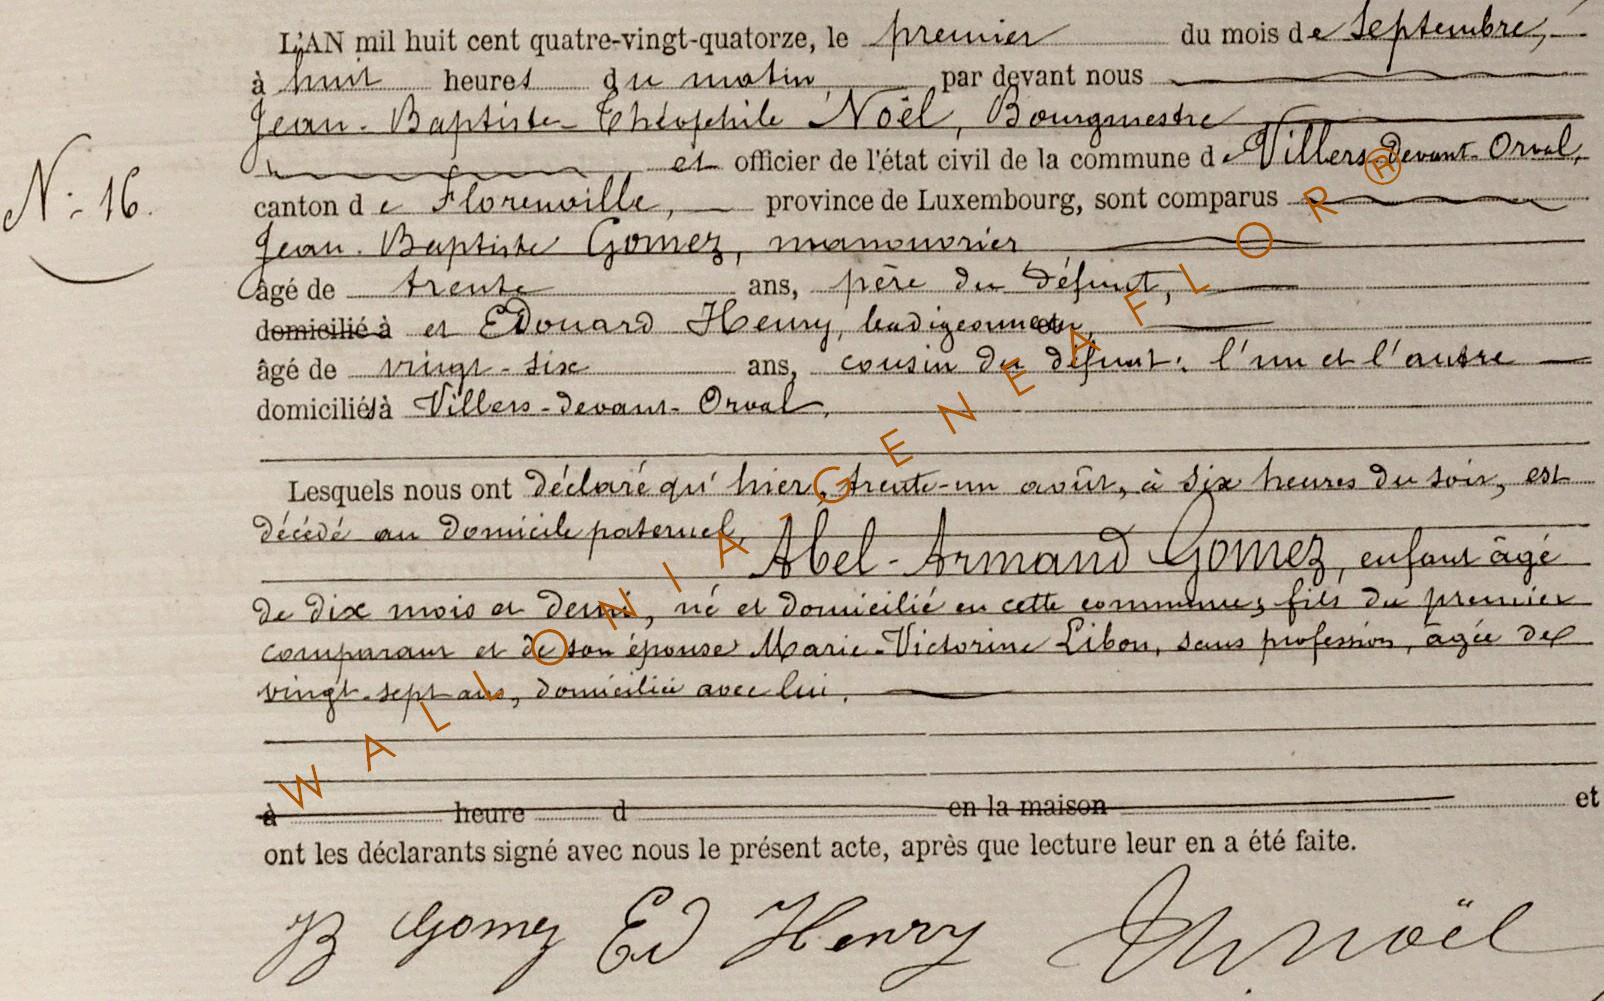 L'AN mil huit cent quatre-vingt-quatorze, le premier du mois de Septembre,
à huit heures du matin, par devant nous
Jean-Baptiste-Théophile Noël, Bourgmestre
et officier de l'état civil de la commune de Villers-devant-Orval,
N° 16.
canton de Florenville, province de Luxembourg, sont comparus
Jean-Baptiste Gomez, manouvrier
âgé de trente ans, père du défunt,
domicilié à et Edouard Henry, badigeonneur,
âgé de vingt-six ans, cousin du défunt; l'un et l'autre
domiciliés à Villers-devant-Orval.
Lesquels nous ont déclaré qu'hier, trente-un août, à six heures du soir, est
décédé au domicile paternel,
Abel-Armand Gomez, enfant âgé
de dix mois et demi, né et domicilié en cette commune, fils du premier
comparant et de son épouse Marie-Victorine Libon, sans profession, âgée de
vingt-sept ans, domiciliée avec lui.
à heure d en la maison et
ont les déclarants signé avec nous le présent acte, après que lecture leur en a été faite.
JB Gomez Ed Henry Th. Noël
WALLONIA-GENEAFLOR®